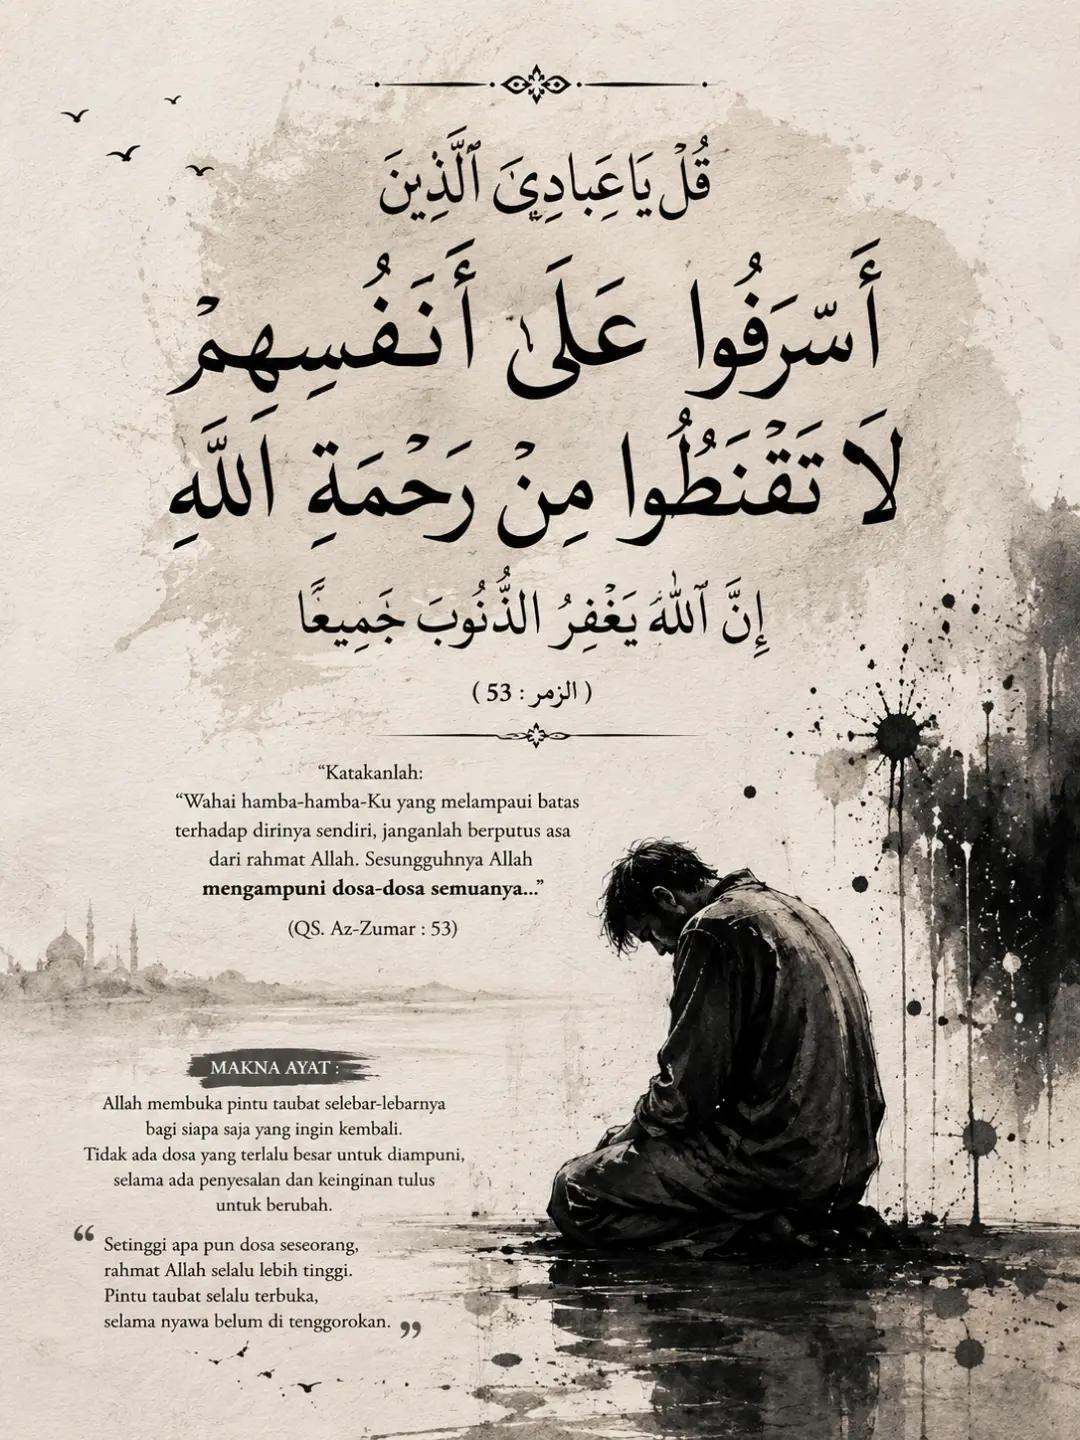 قُلْ يَاعَِبادِيَ ٱلَّذِينَ
أَسّرَفُوا عَلَىٰ أَنَفُسِهِمْ
لَا تَقْنَطُوا مِنْ رَحْمَةِ اللَّهِ
إِنَّ ٱللَّهَ يَغْفِرُ الذُّنُوبَ جَمِيعًا
( الزمر : 53 )
“Katakanlah:
“Wahai hamba-hamba-Ku yang melampaui batas
terhadap dirinya sendiri, janganlah berputus asa
dari rahmat Allah. Sesungguhnya Allah
mengampuni dosa-dosa semuanya...”
(QS. Az-Zumar : 53)
MAKNA AYAT :
Allah membuka pintu taubat selebar-lebarnya
bagi siapa saja yang ingin kembali.
Tidak ada dosa yang terlalu besar untuk diampuni,
selama ada penyesalan dan keinginan tulus
untuk berubah.
“ Setinggi apa pun dosa seseorang,
rahmat Allah selalu lebih tinggi.
Pintu taubat selalu terbuka,
selama nyawa belum di tenggorokan. ”